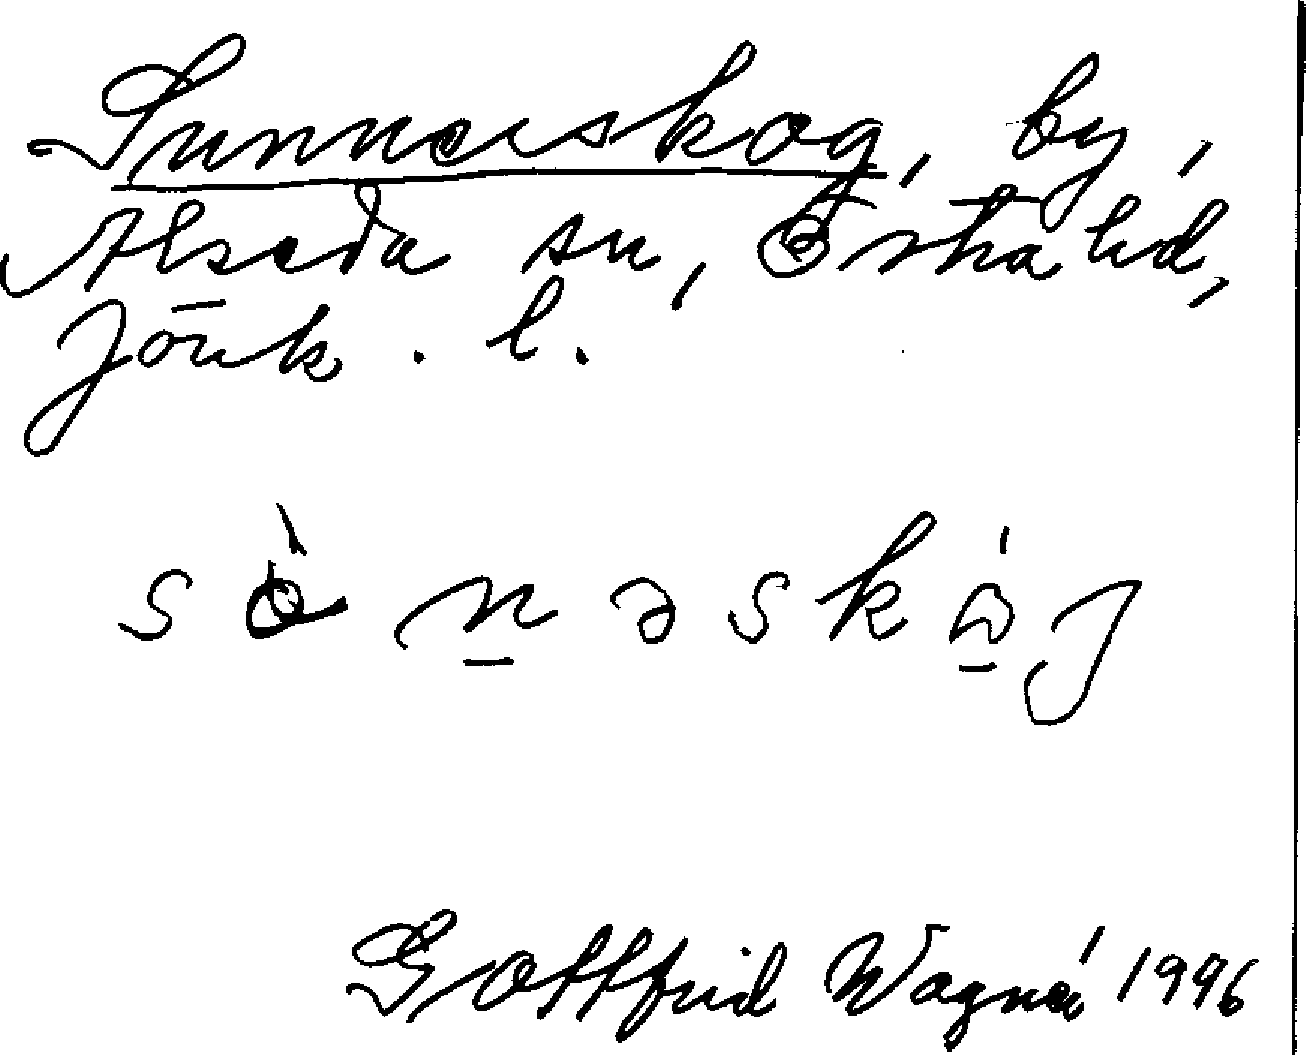 Sunnerskog, by,
Alseda sn, Östra hd,
Jönk. l.
Gottfrid Wagnér 1996